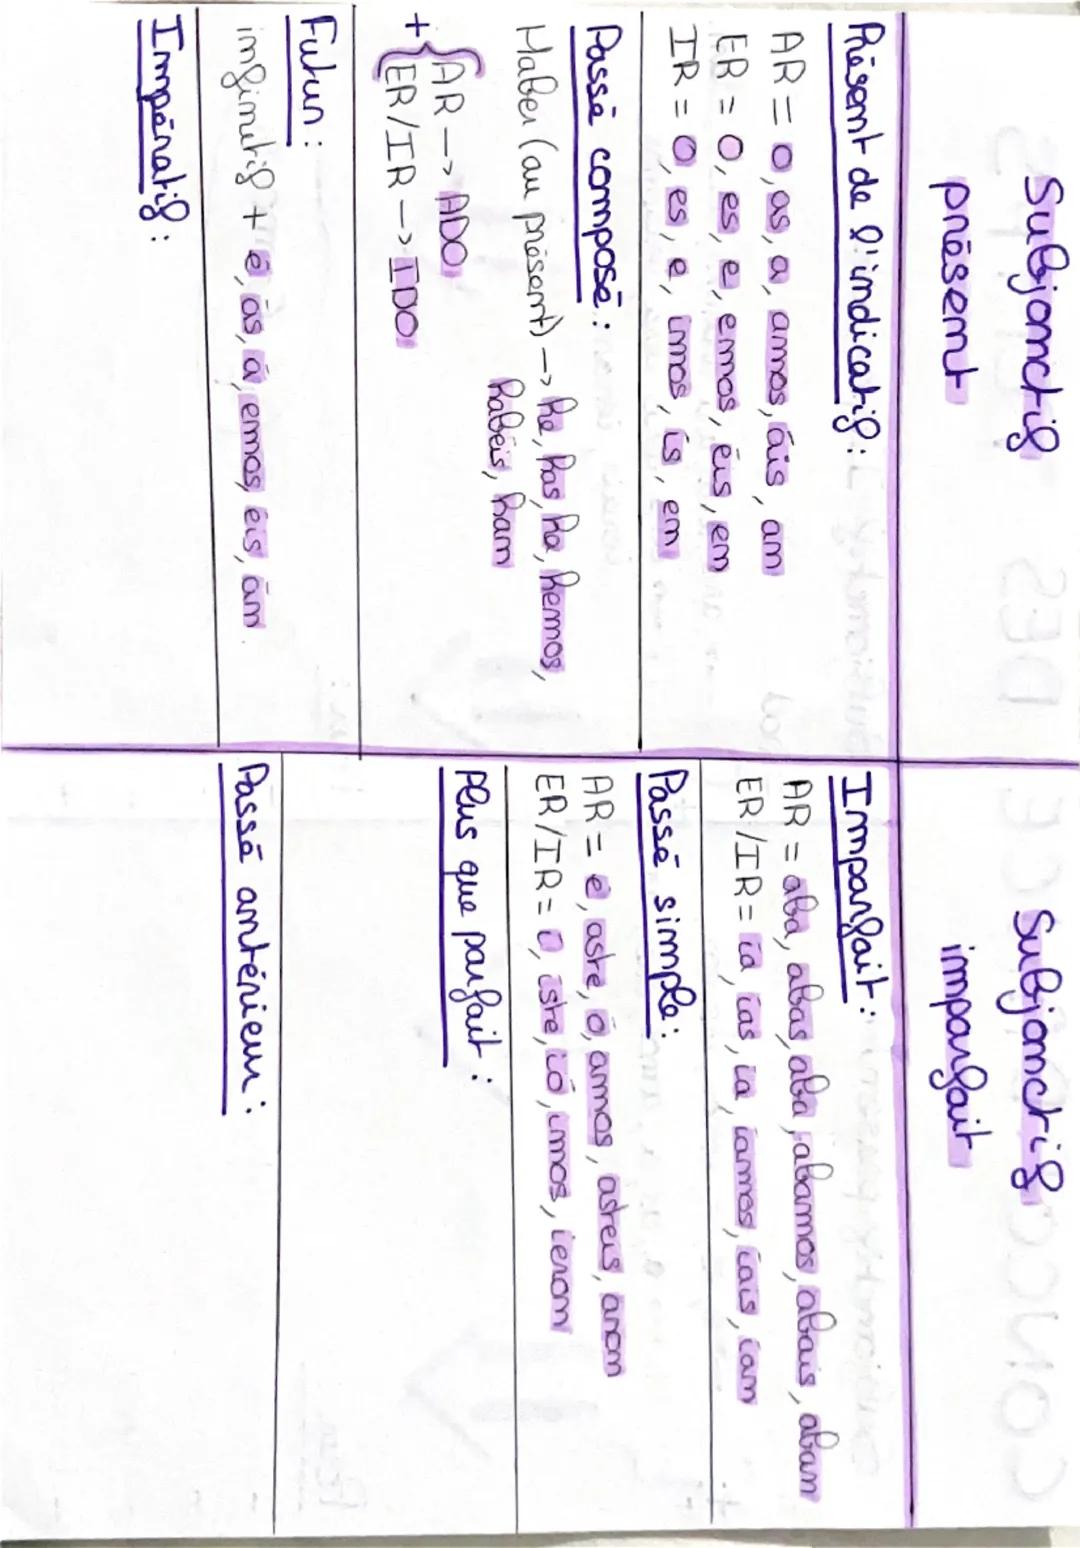 Subjonctif
présent
Présent de l'indicatif :
AR = o, as, a, amos, áis, an
ER = o, es, e, emos, éis, en
IR = o, es, e, imos, ís, en
Passé composé :
Haber (au présent) -> he, has, ha, hemos,
habéis, han
+ { AR -> ADO
ER/IR -> IDO
Futur :
infinitif + é, ás, á, emos, éis, án
Impératif :
Subjonctif
imparfait
Imparfait :
AR = aba, abas, aba, abamos, abais, aban
ER/IR = ía, ías, ía, íamos, íais, ían
Passé simple :
AR = é, aste, ó, amos, asteis, aron
ER/IR = í, iste, ió, imos, ieron
Plus que parfait :
Passé antérieur :